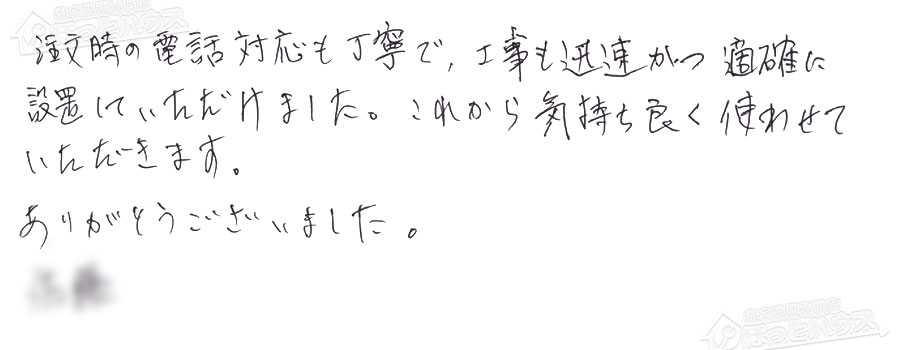 注文時の電話対応も丁寧で、工事も迅速かつ適確に
設置していただけました。これから気持ち良く使わせて
いただきます。
ありがとうございました。
住宅設備専門店
ほっとハウス